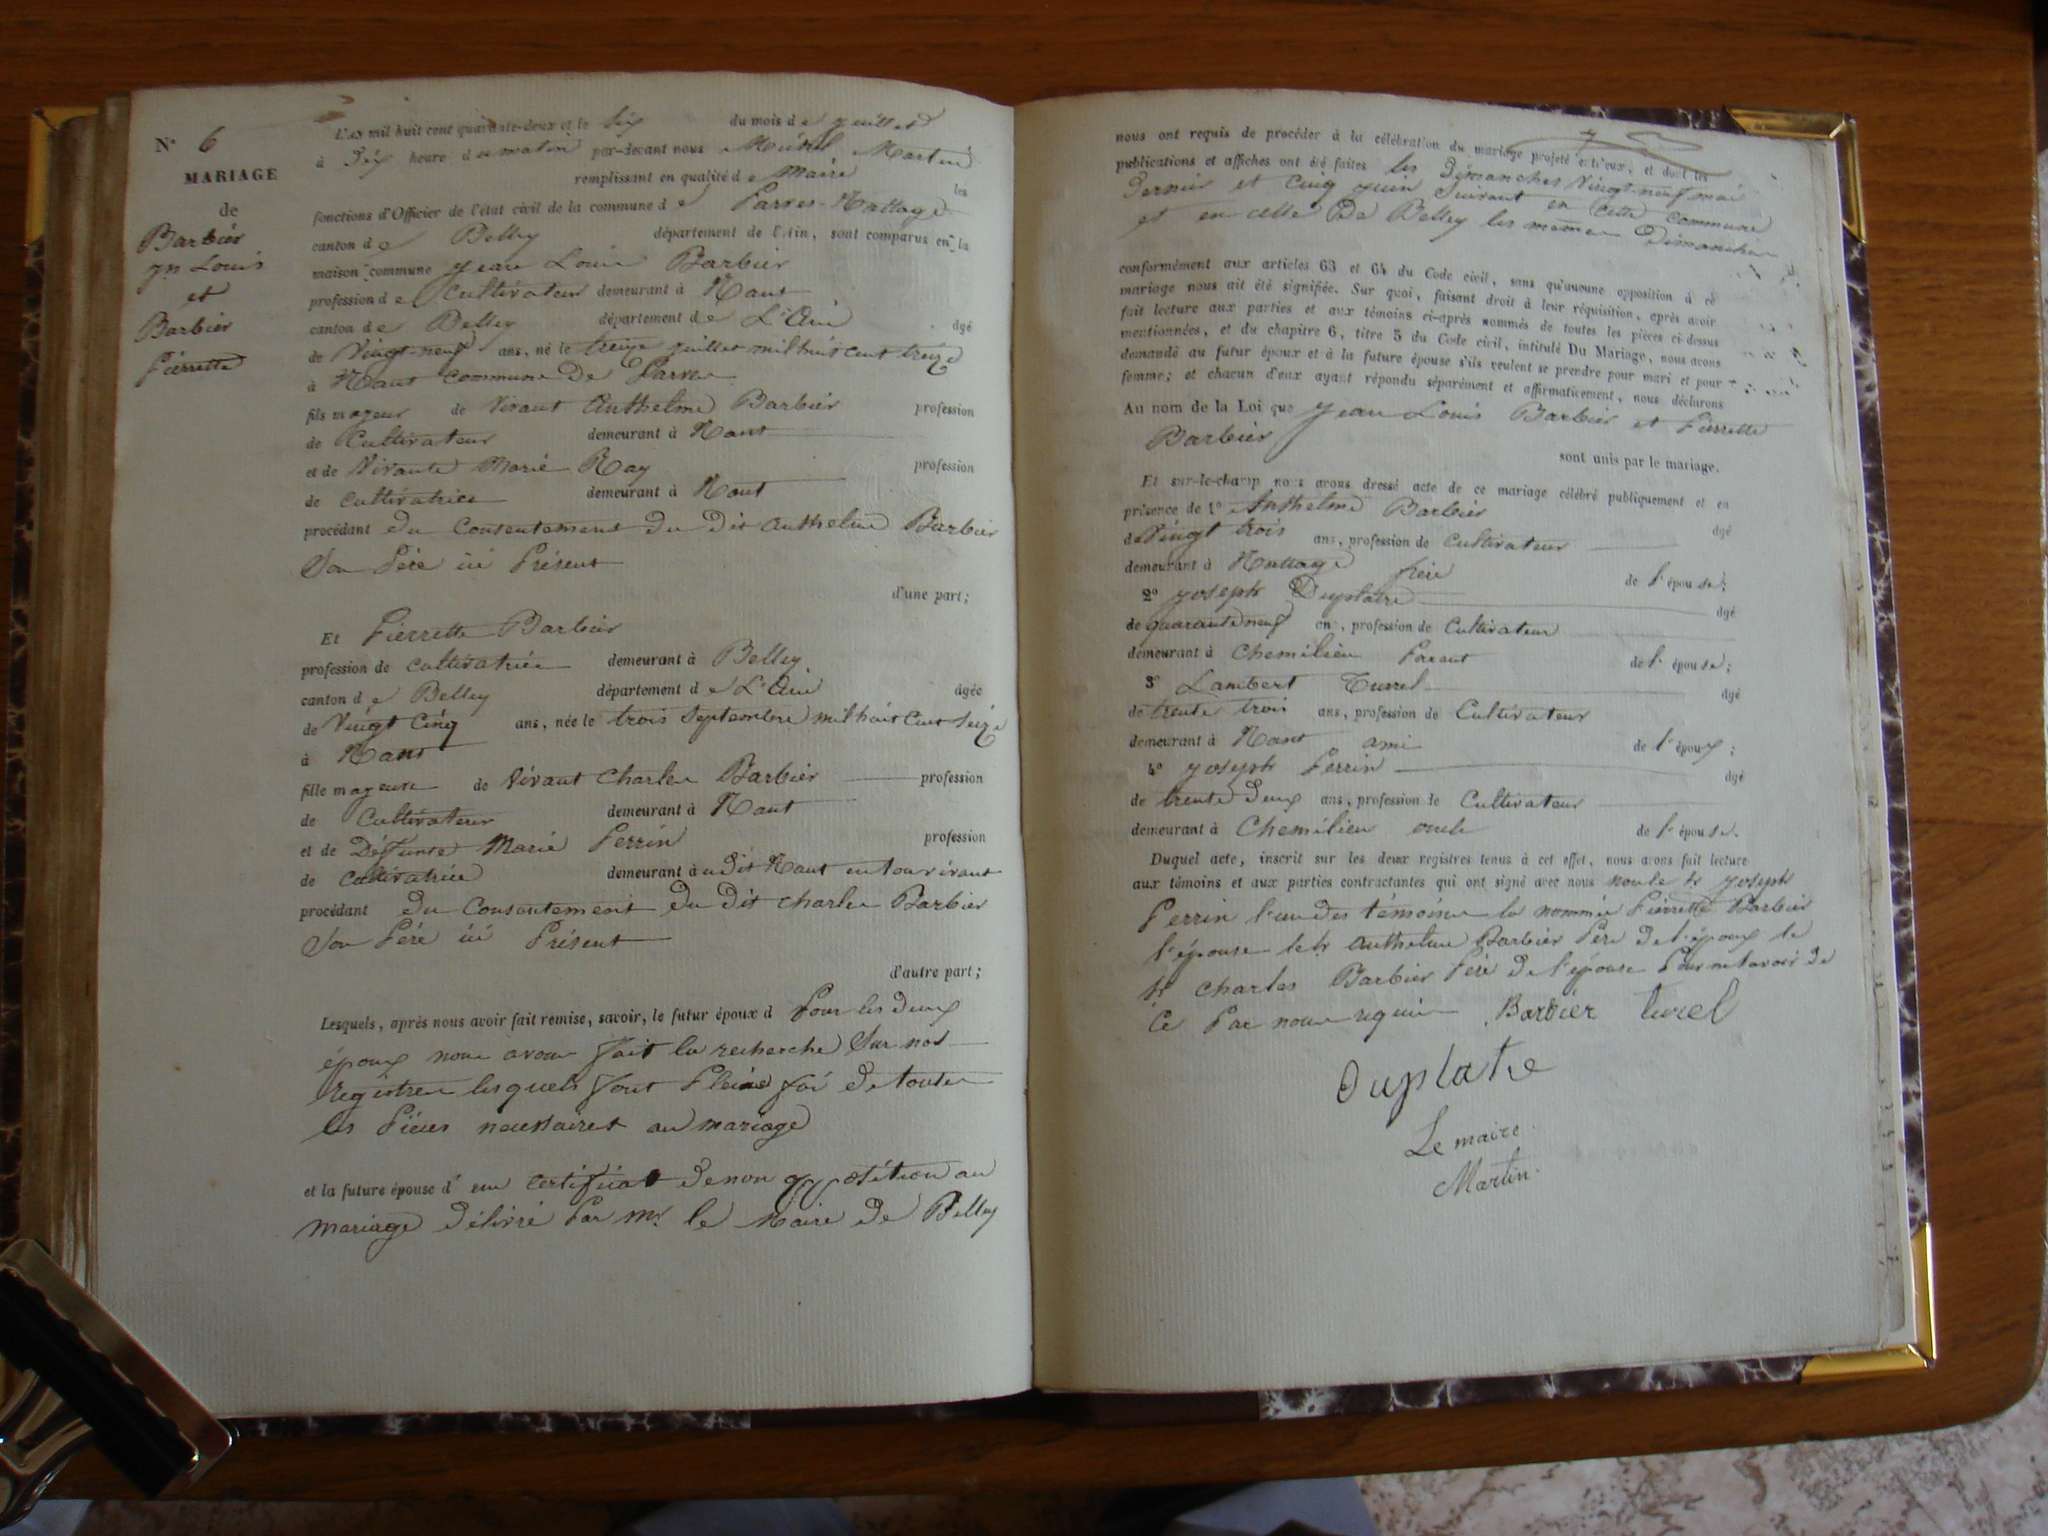 N° 6
MARIAGE
de
Barbier
jn Louis
et
Barbier
Pierrette
L'an mil huit cent quarante-deux et le six du mois de juillet
à Six heure du matin par-devant nous Michel Martin
remplissant en qualité de Maire les
fonctions d'Officier de l'état civil de la commune de Parves-Nattage
canton de Belley département de l'Ain, sont comparus en la
maison commune Jean Louis Barbier
profession de Cultivateur demeurant à Nant
canton de Belley département de L'Ain âgé
de Vingt-neuf ans, né le treize juillet mil huit cent treize
à Nant commune de Parves
fils majeur de Vivant Anthelme Barbier profession
de Cultivateur demeurant à Nant
et de Vivante Marie Ray profession
de cultivatrice demeurant à Nant
procédant du Consentement du dit Anthelme Barbier
Son Père ici Présent
d'une part;
Et Pierrette Barbier
profession de cultivatrice demeurant à Belley
canton de Belley département de L'Ain âgée
de Vingt Cinq ans, née le trois Septembre mil huit Cent Seize
à Nant
fille majeure de Vivant Charles Barbier profession
de Cultivateur demeurant à Nant
et de Défunte Marie Perrin profession
de cultivatrice demeurant au dit Nant en son vivant
procédant du Consentement du dit Charles Barbier
Son Père ici Présent
d'autre part;
Lesquels, après nous avoir fait remise, savoir, le futur époux d Pour les deux
époux nous avons fait la recherche Sur nos
registres lesquels font Pleine foi de toutes
les Pièces nécessaires au mariage
et la future épouse d'un certificat de non opposition au
mariage délivré Par Mr le Maire de Belley
7
nous ont requis de procéder à la célébration du mariage projeté entr'eux, et dont les
publications et affiches ont été faites les Dimanches Vingt-neuf mai
dernier et Cinq juin Suivant en cette commune
et en celle de Belley les mêmes dimanches
conformément aux articles 63 et 64 du Code civil, sans qu'aucune opposition à ce
mariage nous ait été signifiée. Sur quoi, faisant droit à leur réquisition, après avoir
fait lecture aux parties et aux témoins ci-après nommés de toutes les pièces ci-dessus
mentionnées, et du chapitre 6, titre 5 du Code civil, intitulé Du Mariage, nous avons
demandé au futur époux et à la future épouse s'ils veulent se prendre pour mari et pour
femme; et chacun d'eux ayant répondu séparément et affirmativement, nous déclarons
Au nom de la Loi que Jean Louis Barbier et Pierrette
Barbier
sont unis par le mariage.
Et sur-le-champ nous avons dressé acte de ce mariage célébré publiquement et en
présence de 1° Anthelme Barbier âgé
de Vingt trois ans, profession de Cultivateur
demeurant à Nattage frère de l'épouse;
2° Joseph Duplatre âgé
de quarante neuf ans, profession de Cultivateur
demeurant à Chemilieu Parent de l'épouse;
3° Lambert Turrel âgé
de trente trois ans, profession de Cultivateur
demeurant à Nant ami de l'époux;
4° Joseph Perrin âgé
de trente Deux ans, profession de Cultivateur
demeurant à Chemilieu oncle de l'épouse.
Duquel acte, inscrit sur les deux registres tenus à cet effet, nous avons fait lecture
aux témoins et aux parties contractantes qui ont signé avec nous non le Sr Joseph
Perrin l'un des témoins la nommée Pierrette Barbier
l'épouse le Sr Anthelme Barbier Père de l'époux le
Sr Charles Barbier Père de l'épouse Pour ne savoir de
Ce Par nous requis Barbier turel
duplatre
Le maire
Martin